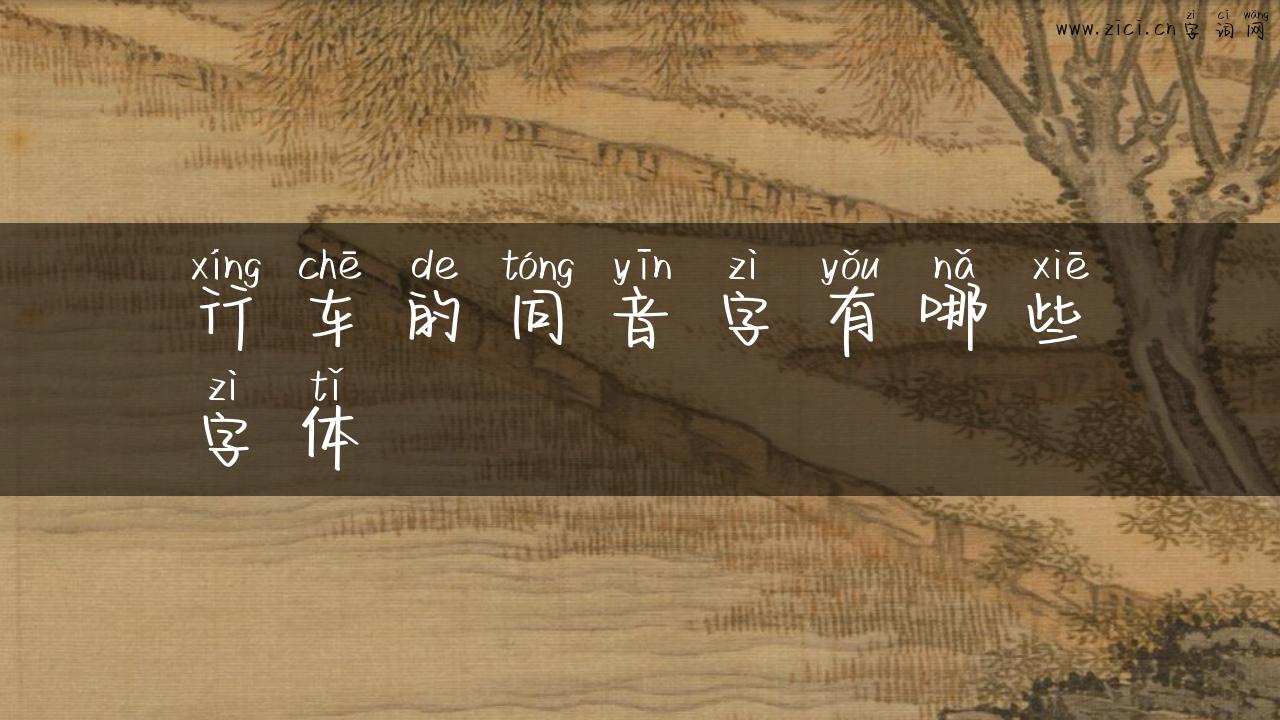 zì cí wǎng
www.zici.cn 字词网
xíng chē de tóng yīn zì yǒu nǎ xiē
行车的同音字有哪些
zì tǐ
字体